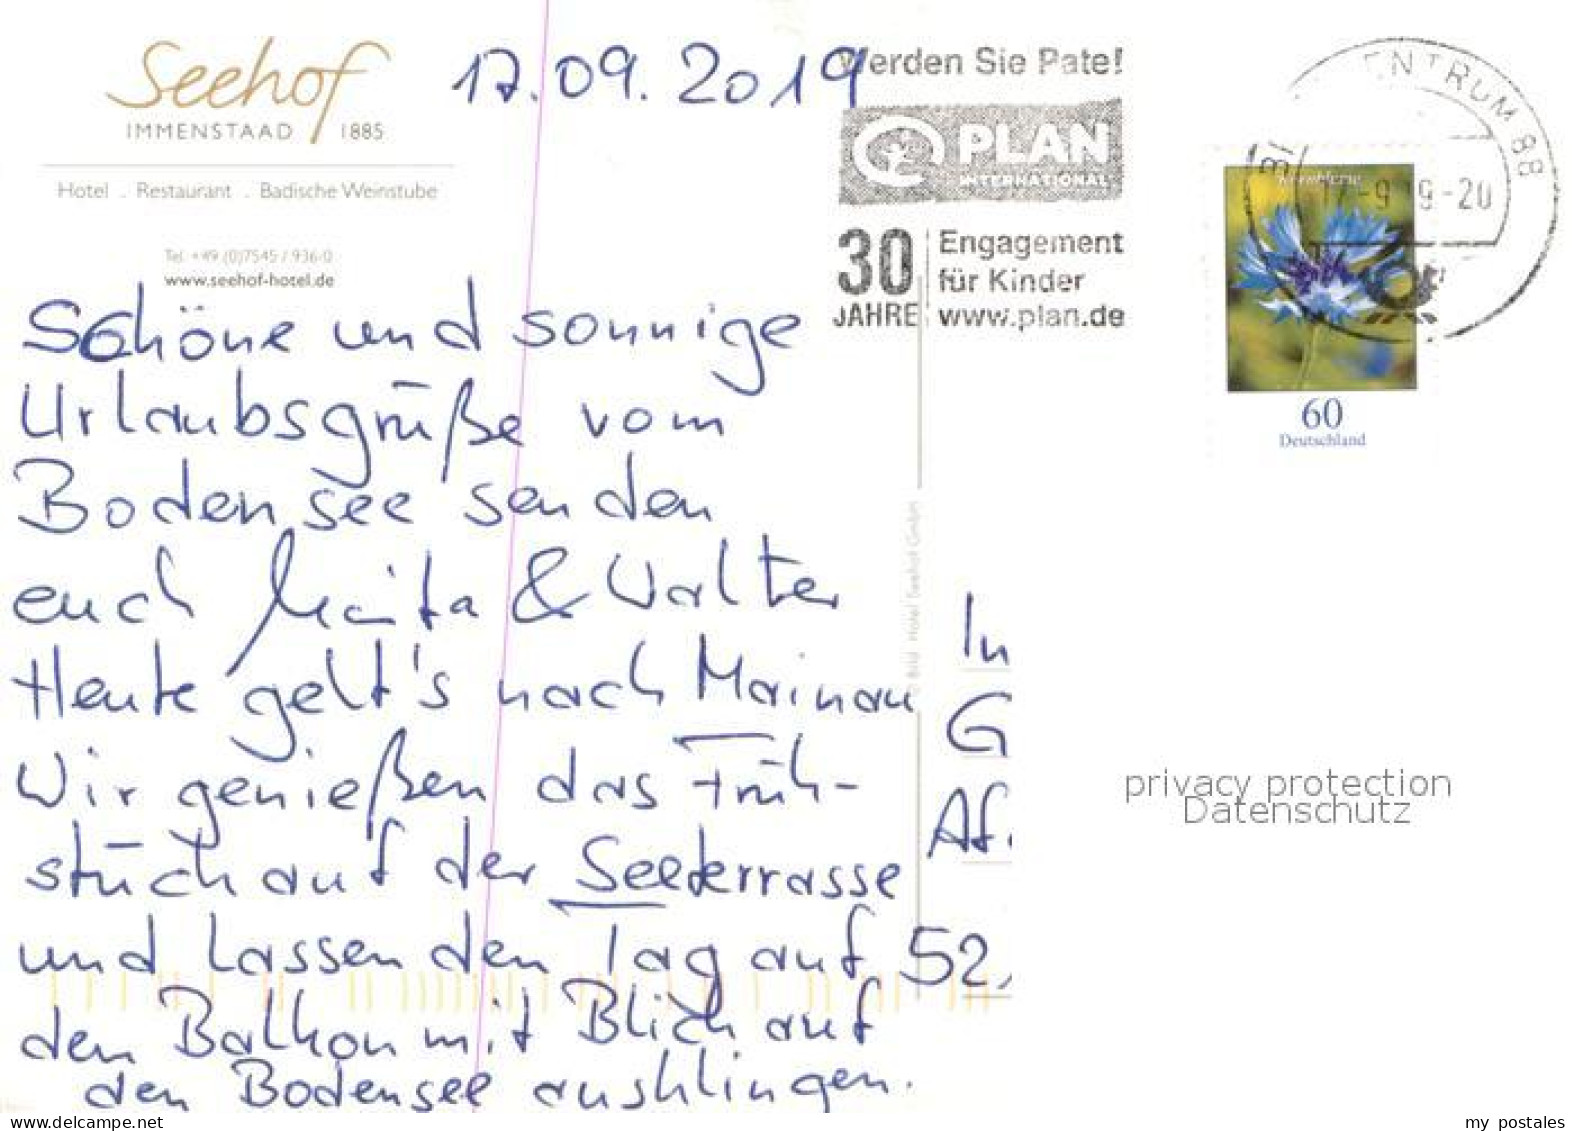 Seehof
IMMENSTAAD 1885
Hotel . Restaurant . Badische Weinstube
Tel. +49 (0)7545 / 936-0
www.seehof-hotel.de
17.09.2019
Werden Sie Pate!
PLAN
INTERNATIONAL
30 JAHRE
Engagement
für Kinder
www.plan.de
ENTRUM 88
-9 19-20
Kornblume
60
Deutschland
Schöne und sonnige
Urlaubsgrüße vom
Bodensee senden
euch & Walter
Heute geht's nach Mainau
Wir genießen das Früh-
stück auf der Seeterrasse
und lassen den Tag auf
den Balkon mit Blick auf
den Bodensee ausklingen.
© Bild: Hotel Seehof GmbH
In
G
Af.
52
privacy protection
Datenschutz
delcampe.net
my_postales